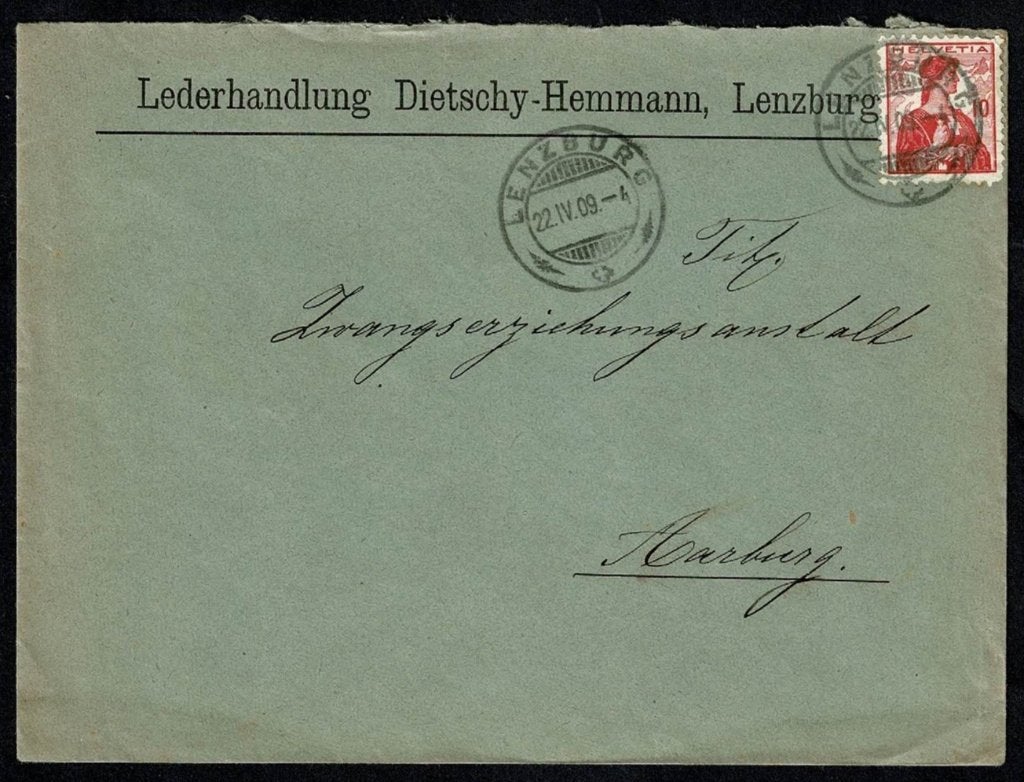 Lederhandlung Dietschy-Hemmann, Lenzburg
HELVETIA
10
LENZBURG
22.IV.09.–4
Tit.
Zwangserziehungsanstalt
Aarburg.